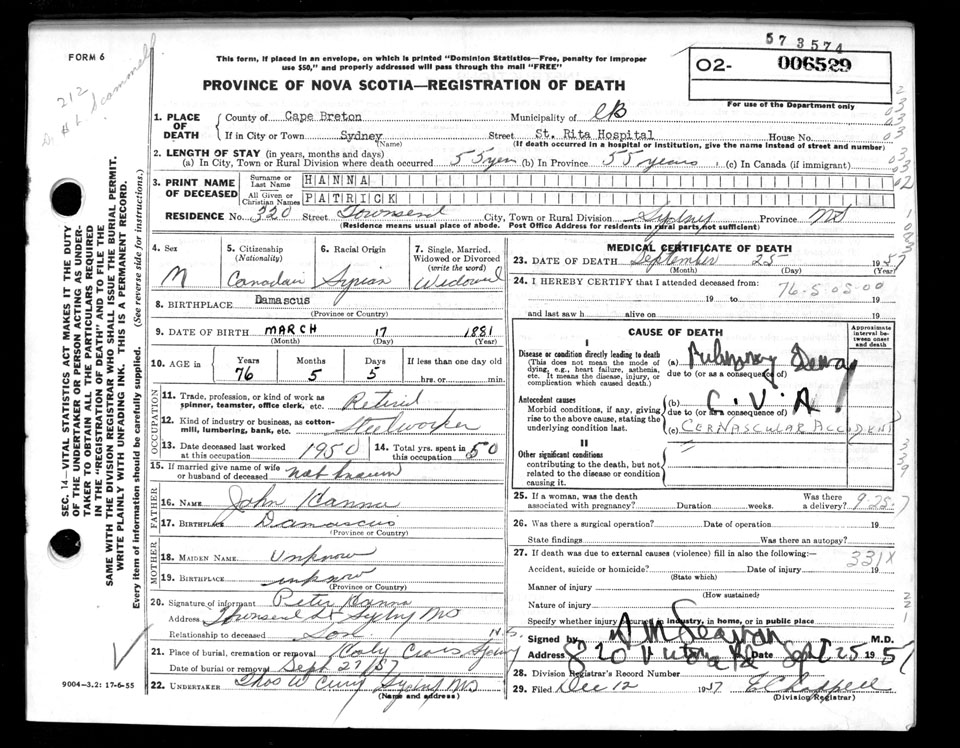 573574
FORM 6
This form, if placed in an envelope, on which is printed "Dominion Statistics—Free, penalty for improper
use $50," and properly addressed will pass through the mail "FREE"
O2- 006529
For use of the Department only
PROVINCE OF NOVA SCOTIA—REGISTRATION OF DEATH
212
1. PLACE OF DEATH
County of Cape Breton Municipality of CB
If in City or Town Sydney Street St. Rita Hospital House No.
(Name) (If death occurred in a hospital or institution, give the name instead of street and number)
2. LENGTH OF STAY (in years, months and days)
(a) In City, Town or Rural Division where death occurred 55 years (b) In Province 55 years (c) In Canada (if immigrant)
3. PRINT NAME OF DECEASED
Surname or Last Name HANNA
All Given or Christian Names PATRICK
RESIDENCE No. 320 Street Townsend City, Town or Rural Division Sydney Province NS
(Residence means usual place of abode. Post Office Address for residents in rural parts not sufficient)
4. Sex M
5. Citizenship (Nationality) Canadian
6. Racial Origin Syrian
7. Single, Married, Widowed or Divorced (write the word) Widowed
8. BIRTHPLACE Damascus
(Province or Country)
9. DATE OF BIRTH MARCH 17 1881
(Month) (Day) (Year)
10. AGE in Years 76 Months 5 Days 5 If less than one day old
hrs. or min.
OCCUPATION
11. Trade, profession, or kind of work as
spinner, teamster, office clerk, etc. Retired
12. Kind of industry or business, as cotton-
mill, lumbering, bank, etc. Steelworker
13. Date deceased last worked at this occupation 1950
14. Total yrs. spent in this occupation 50
15. If married give name of wife
or husband of deceased not known
FATHER
16. NAME John Hanna
17. BIRTHPLACE Damascus
(Province or Country)
MOTHER
18. MAIDEN NAME Unknow
19. BIRTHPLACE unknow
(Province or Country)
20. Signature of informant Peter Hanna
Address Townsend St Sydney NS
Relationship to deceased Son
21. Place of burial, cremation or removal Holy Cross Sydney N.S.
Date of burial or removal Sept 27/57
22. UNDERTAKER Thos W Curry Sydney NS
(Name and address)
MEDICAL CERTIFICATE OF DEATH
23. DATE OF DEATH September 25 1957
(Month) (Day) (Year)
24. I HEREBY CERTIFY that I attended deceased from:
76-5-05-00
19 to 19
and last saw h alive on 19
CAUSE OF DEATH
Approximate interval between onset and death
I
Disease or condition directly leading to death
(This does not mean the mode of
dying, e.g., heart failure, asthenia,
etc. It means the disease, injury, or
complication which caused death.)
(a) Pulmonary
due to (or as a consequence of)
Antecedent causes
Morbid conditions, if any, giving
rise to the above cause, stating the
underlying condition last.
(b) C.V.A.
due to (or as a consequence of)
(c) CERVASCULAR ACCIDENT
II
Other significant conditions
contributing to the death, but not
related to the disease or condition
causing it.
25. If a woman, was the death
associated with pregnancy? Duration weeks. Was there a delivery?
9-25-7
26. Was there a surgical operation? Date of operation 19
State findings Was there an autopsy?
27. If death was due to external causes (violence) fill in also the following:
331X
Accident, suicide or homicide? Date of injury 19
(State which)
Manner of injury
(How sustained)
Nature of injury
Specify whether injury occurred in industry, in home, or in public place
Signed by M.D.
Address Date Sept 25 1957
28. Division Registrar's Record Number
29. Filed Dec 12 1957
(Division Registrar)
SEC. 14—VITAL STATISTICS ACT MAKES IT THE DUTY
OF THE UNDERTAKER OR PERSON ACTING AS UNDER-
TAKER TO OBTAIN ALL THE PARTICULARS REQUIRED
IN THE "REGISTRATION OF DEATH" AND TO FILE THE
SAME WITH THE DIVISION REGISTRAR WHO SHALL ISSUE THE BURIAL PERMIT.
WRITE PLAINLY WITH UNFADING INK. THIS IS A PERMANENT RECORD.
Every item of information should be carefully supplied. (See reverse side for instructions.)
9004—3.2: 17-6-55